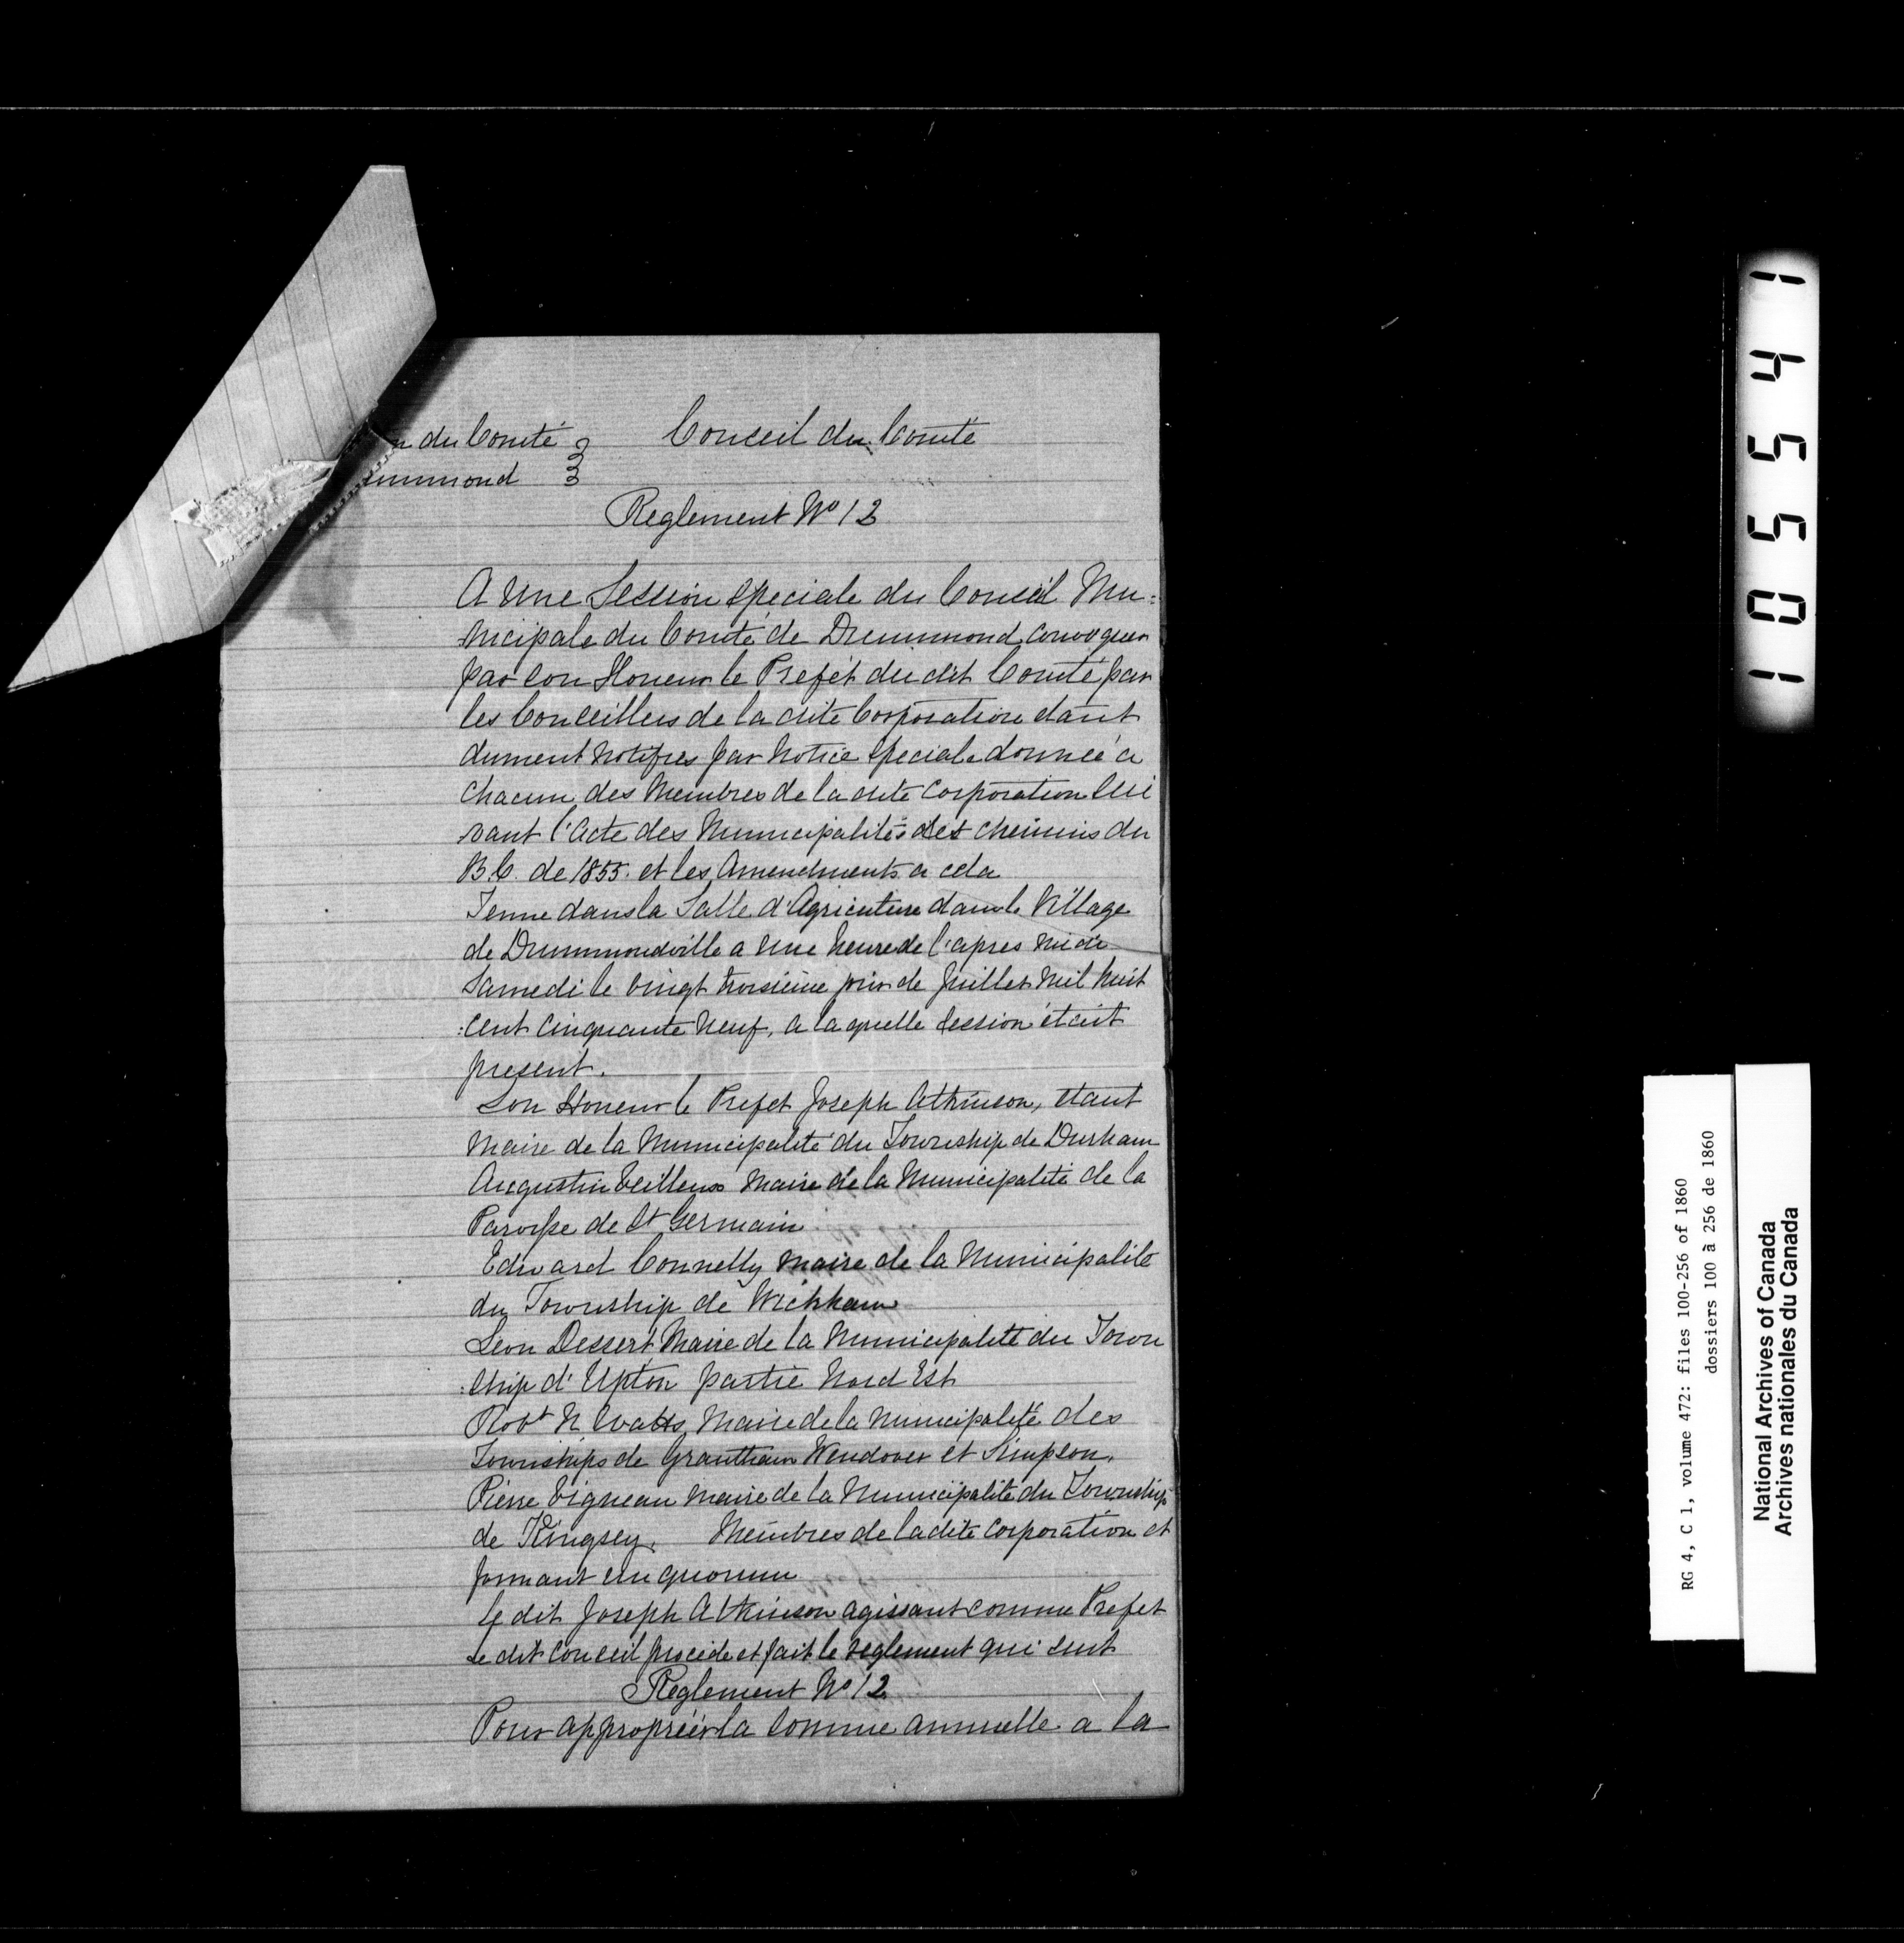 n du Comté Conseil du Comté
ummond
Reglement No 12
A Une Session Speciale du Conseil Mu=
nicipale du Comté de Drummond convoquer
par son Honeur le Prefét du dit Comté par
les Conseillers de la dite Corporation etant
dument Notifies par Notice Speciale donneé a
chacun des Membres de la dite Corporation Sui
vant l'Acte des Municipalités et chemins du
B.C. de 1855. et les Amendments a cela
Tenue dans la Salle d'Agriculture dans le Village
de Drummondville a Une heure de l'apres midi
Samedi le Vingt troisieme jour de Juillet Mil huit
cent cinquante Neuf, a laquelle Session était
present.
Son Honeur le Prefet Joseph Atkinson, etant
Maire de la Municipalité du Township de Durham
Augustin Veilleux Maire de la Municipalité de la
Paroisse de St Germain
Edward Connelly Maire de la Municipalité
du Township de Wickham
Leon Dessert Maire de la Municipalité du Town
ship d'Upton partie Nord Est
Robt N Watts Maire de la Municipalité des
Townships de Grantham Wendover et Simpson.
Pierre Vigneau Maire de la Municipalité du Township
de Kingsey. Membres de la dite Corporation et
formant un quorum
Le dit Joseph Atkinson agissant comme Prefet
Le dit Conseil procede et fait le reglement qui suit
Reglement No 12
Pour approprier la somme annuelle a la
105541
RG 4, C 1, volume 472: files 100-256 of 1860
dossiers 100 à 256 de 1860
National Archives of Canada
Archives nationales du Canada